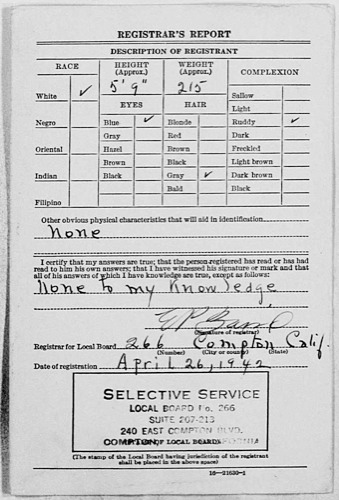 REGISTRAR'S REPORT
DESCRIPTION OF REGISTRANT
RACE
HEIGHT (Approx.)
WEIGHT (Approx.)
COMPLEXION
White ✓
5' 9"
215
Sallow
Light
EYES
HAIR
Negro
Blue ✓
Blonde
Ruddy ✓
Gray
Red
Dark
Oriental
Hazel
Brown
Freckled
Brown
Black
Light brown
Indian
Black
Gray ✓
Dark brown
Bald
Black
Filipino
Other obvious physical characteristics that will aid in identification
None
I certify that my answers are true; that the person registered has read or has had
read to him his own answers; that I have witnessed his signature or mark and that
all of his answers of which I have knowledge are true, except as follows:
None to my Knowledge
(Signature of registrar)
Registrar for Local Board 266 Compton Calif.
(Number) (City or county) (State)
Date of registration April 26, 1942
SELECTIVE SERVICE
LOCAL BOARD No. 266
SUITE 207-213
240 EAST COMPTON BLVD.
COMPTON
OF LOCAL BOARD
(The stamp of the Local Board having jurisdiction of the registrant
shall be placed in the above space)
16—21630-1